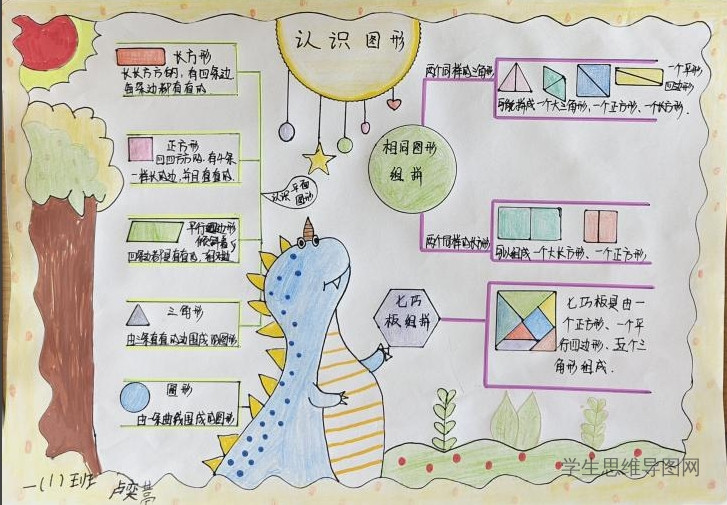 认识图形
长方形
长长方方的,有四条边
每条边都有直的
正方形
四四方方的.有4条
一样长的边,并且直直的.
平行四边形
倾斜着
三角形
由三条直直的边围成的图形
圆形
由一条曲线围成的图形
认识平面
图形
相同图形
组拼
两个同样的三角形
一个平行
四边形
可能拼成一个大三角形,一个正方形、一个长方形.
两个同样的长方形
可以组成一个大长方形、一个正方形.
七巧
板组拼
七巧板是由一
个正方形、一个平
行四边形、五个三
角形组成.
一(1)班
卢奕
学生思维导图网